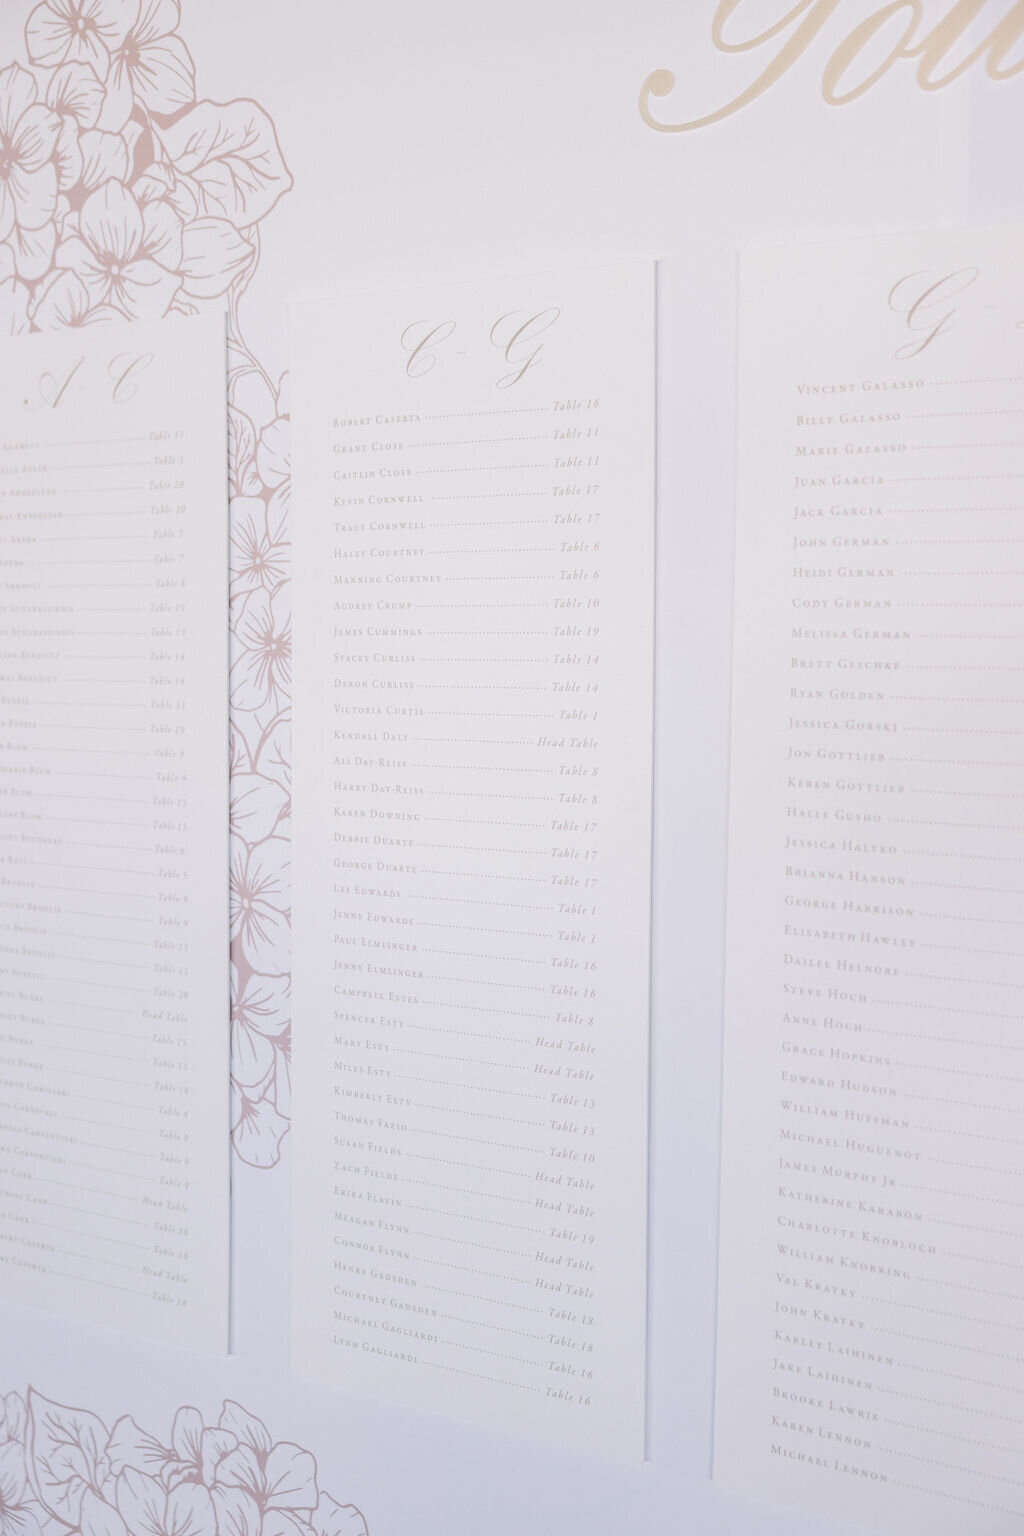 You
A - C
Table 11
Adler Table 5
Table 20
Table 20
Arena Table 7
Arena Table 7
Table 8
Athanassiadis Table 19
Athanassiadis Table 19
Benedict Table 14
Benedict Table 14
Table 13
Table 19
Blum Table 9
Blum Table 9
Blum Table 15
Blum Table 15
Table 6
Table 5
Table 9
Table 9
Table 15
Table 15
Table 20
Burke Head Table
Burke Table 15
Burke Table 15
Burke Table 18
Camilleri Table 4
Carnevali Table 8
Carpentieri Table 9
Carpentieri Table 9
Carr Head Table
Carr Table 18
Table 16
Caserta Head Table
Caserta Table 18
C - G
Robert Caserta Table 16
Grant Close Table 11
Caitlin Close Table 11
Kevin Cornwell Table 17
Tracy Cornwell Table 17
Haley Courtney Table 6
Manning Courtney Table 6
Audrey Crump Table 10
James Cummings Table 19
Stacey Curliss Table 14
Deron Curliss Table 14
Victoria Curtis Table 1
Kendall Daly Head Table
Ali Day-Reiss Table 8
Harry Day-Reiss Table 8
Karen Downing Table 17
Debbie Duarte Table 17
George Duarte Table 17
Lee Edwards Table 1
Jenny Edwards Table 1
Paul Elmlinger Table 16
Jenny Elmlinger Table 16
Campbell Estes Table 8
Spencer Esty Head Table
Mary Esty Head Table
Miles Esty Table 13
Kimberly Esty Table 13
Thomas Fazio Table 10
Susan Fields Head Table
Zach Fields Head Table
Erika Flavin Table 19
Meagan Flynn Head Table
Connor Flynn Head Table
Henry Gadsden Table 18
Courtney Gadsden Table 18
Michael Gagliardi Table 16
Lynn Gagliardi Table 16
G -
Vincent Galasso
Billy Galasso
Marie Galasso
Juan Garcia
Jack Garcia
John German
Heidi German
Cody German
Melissa German
Brett Geschke
Ryan Golden
Jessica Gorski
Jon Gottlieb
Keren Gottlieb
Halle Gusho
Jessica Halyko
Brianna Hanson
George Harrison
Elisabeth Hawley
Dailee Helnore
Steve Hoch
Anne Hoch
Grace Hopkins
Edward Hudson
William Huffman
Michael Huguenot
James Murphy Jr
Katherine Karabon
Charlotte Knobloch
William Knorring
Val Kratky
John Kratky
Karley Laihinen
Jake Laihinen
Brooke Lawrie
Karen Lennon
Michael Lennon